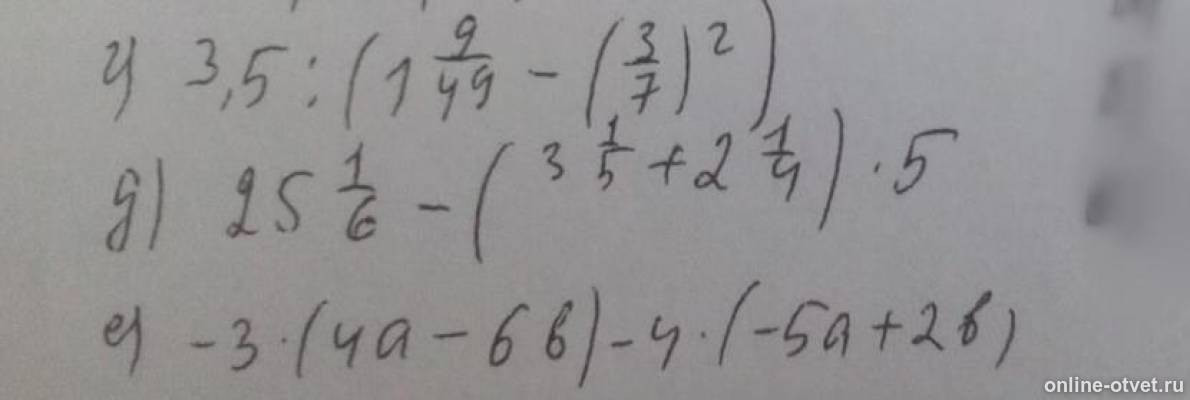 г) 3,5 : (1 9/49 - (3/7)²)
д) 25 1/6 - (3 1/5 + 2 1/4) · 5
е) -3 · (4а - 6в) - 4 · (-5а + 2в)
online-otvet.ru